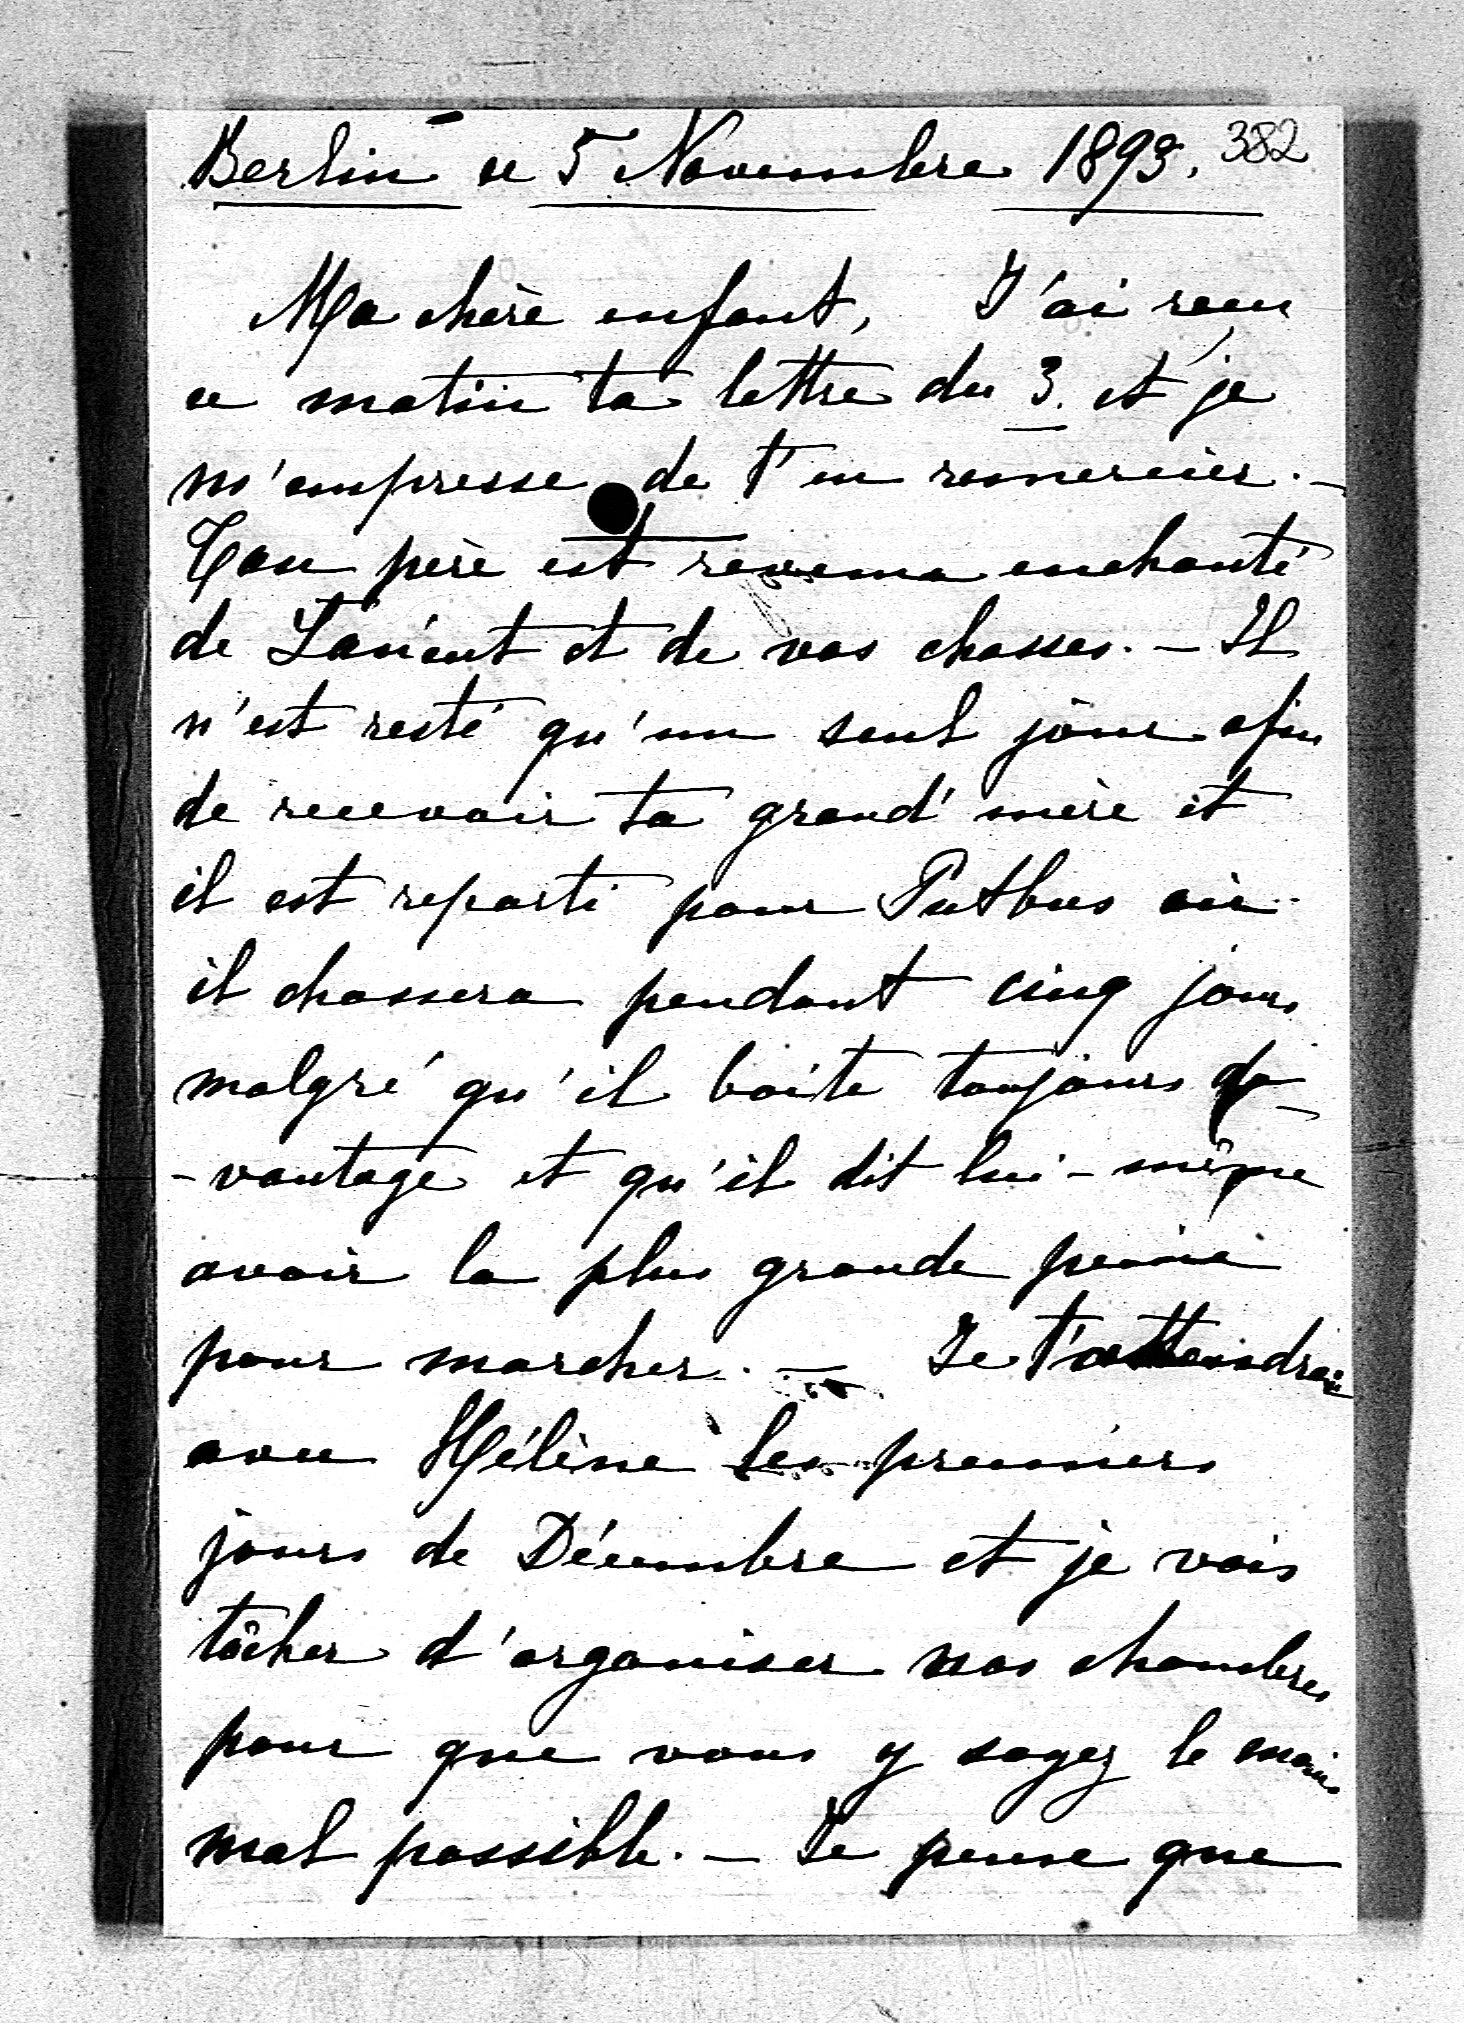 Berlin ce 5 Novembre 1893. 382
Ma chère enfant, J'ai reçu
ce matin ta lettre du 3. et je
m'empresse de t'en remercier. –
Ton père est revenu enchanté
de Lancut et de vos chasses. – Il
n'est resté qu'un seul jour afin
de recevoir ta grand'mère et
il est reparti pour Putbus où
il chassera pendant cinq jours
malgré qu'il boîte toujours da-
-vantage et qu'il dit lui-même
avoir la plus grande peine
pour marcher. – Je t'attendrai
avec Hélène les premiers
jours de Décembre et je vais
tâcher d'organiser nos chambres
pour que vous y soyez le moins
mal possible. – Je pense que